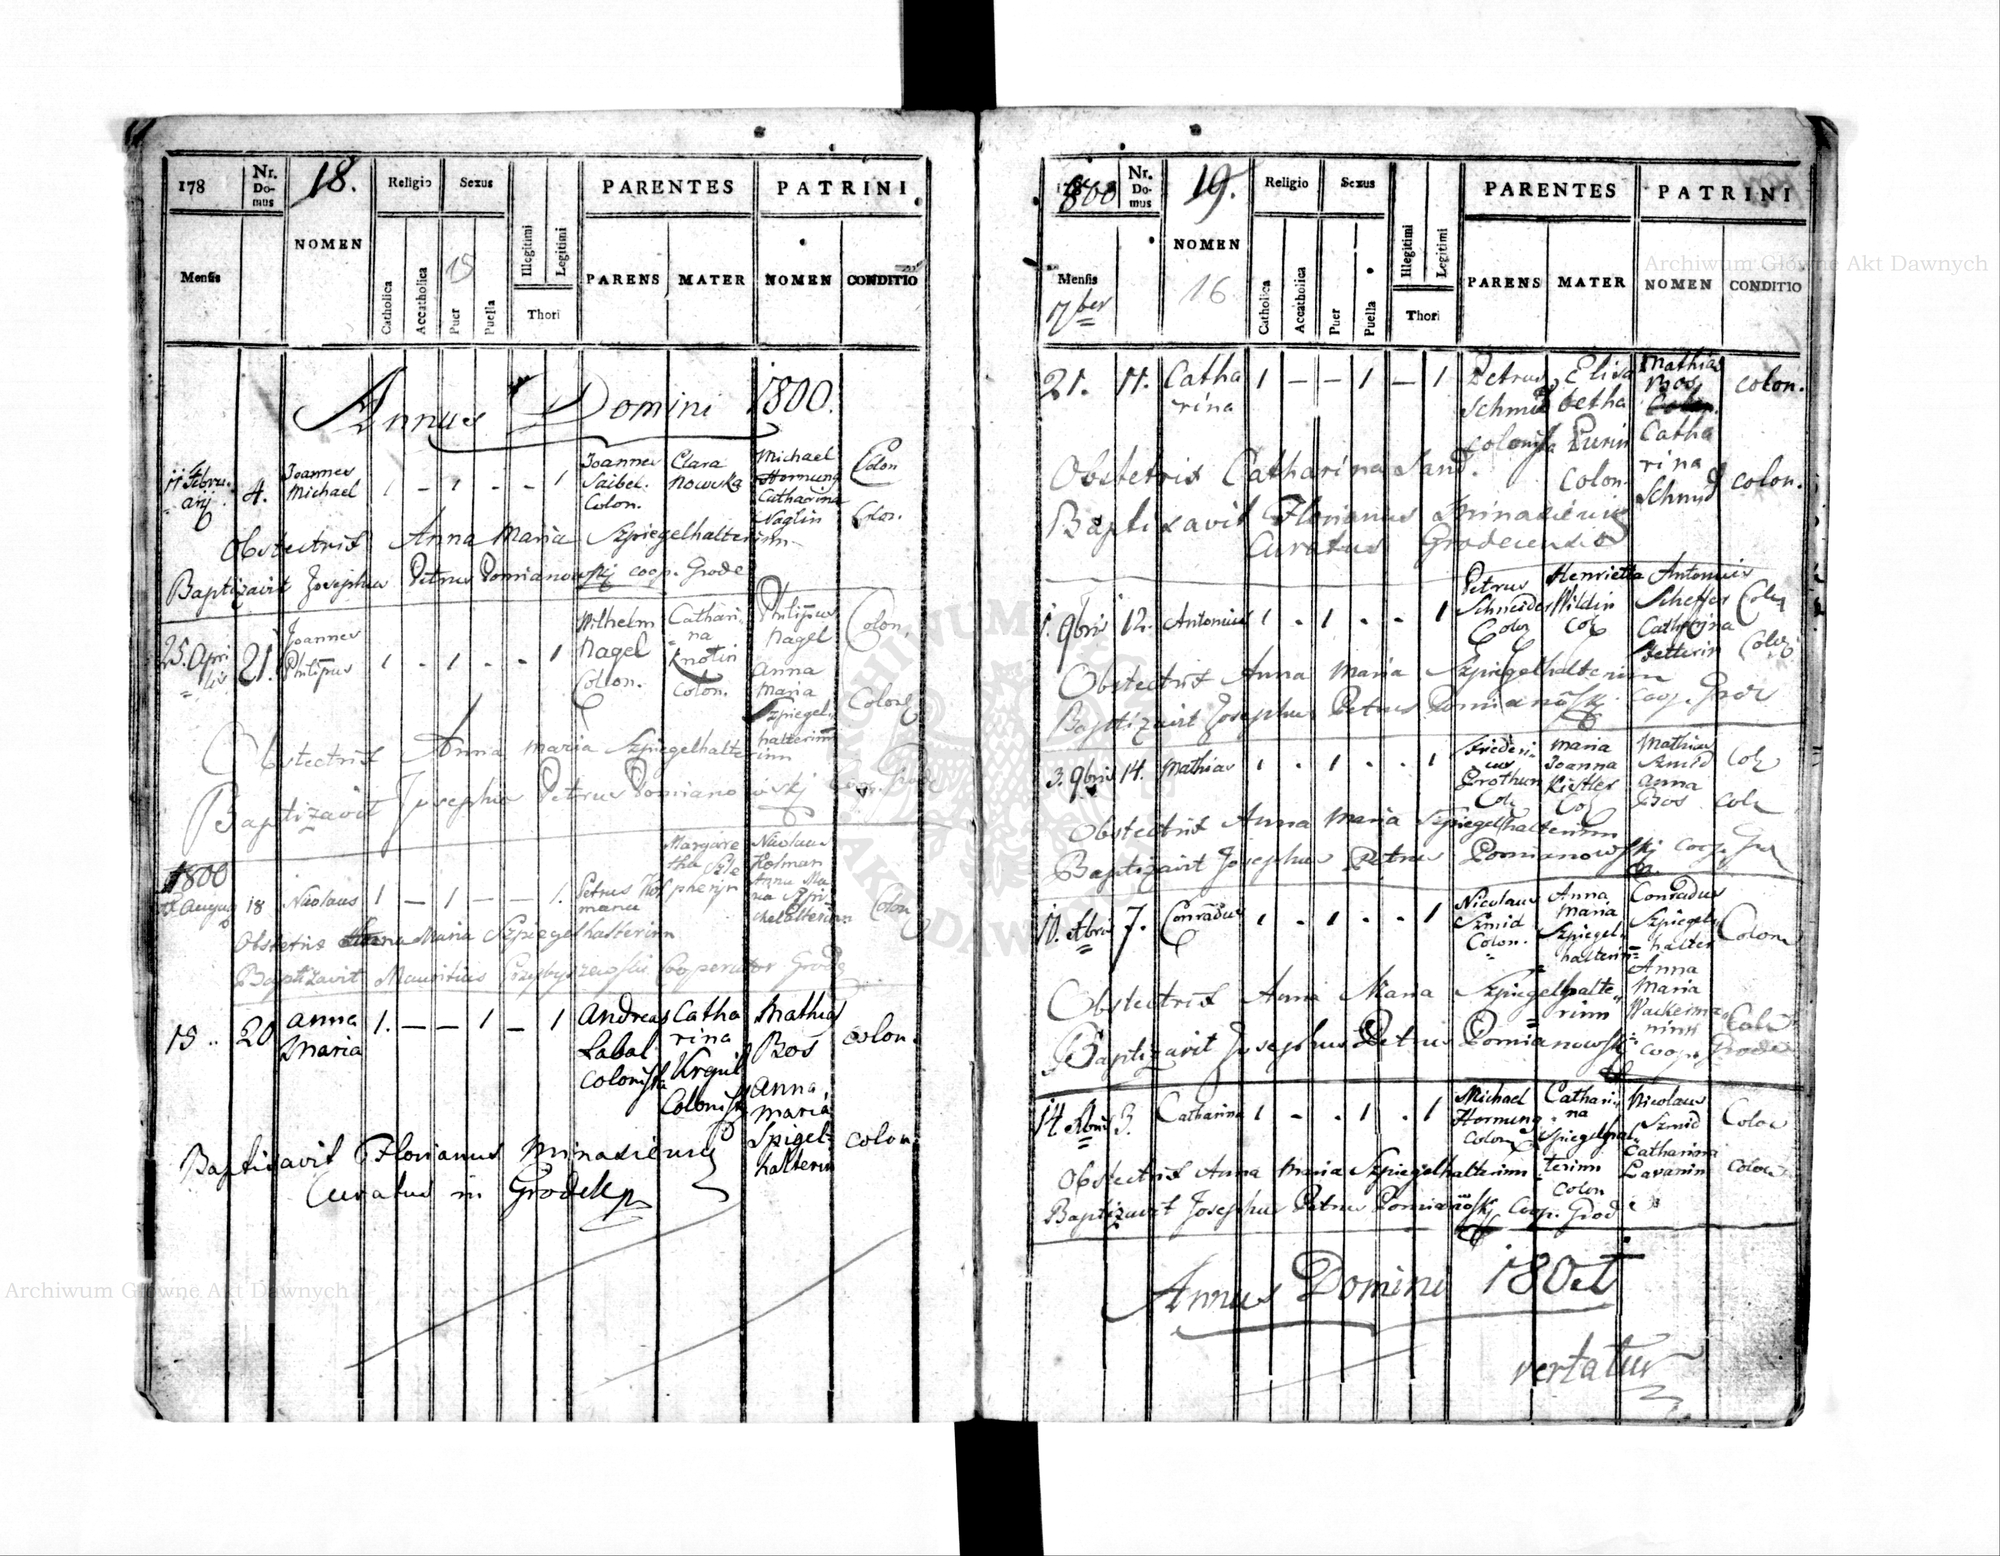 178
Nr. Domus
18.
Religio
Sexus
PARENTES
PATRINI
Mensis
NOMEN
Catholica
Accatholica
Puer
Puella
Illegitimi
Legitimi
Thori
PARENS
MATER
NOMEN
CONDITIO
Annus Domini 1800.
4.
Joannes
Michael
1 - 1 - - 1
Joannes
Saibel
Colon.
Clara
Nowska
Michael
Hornung
Catharina
Naglin
Colon
Colon.
Obstectrix Anna Maria Szpiegelhalterinn
Baptizavit Josephus Petrus Pomianowskj coop. Grode
25. Apri
lis
21.
Joannes
Philippus
1 - 1 - - 1
Wilhelm
Nagel
Colon.
Cathari
na
Knotin
Colon.
Philippus
Nagel
Anna
Maria
Szpiegel
halterinn
Colon.
Colon
Obstectrix Anna Maria Szpiegelhalterinn
Baptizavit Josephus Petrus Pomianowskj Coop. Grode
1800
18
Nicolaus
1 - 1 - - 1.
Petrus
Margare
tha
Nicolaus
Hofman
Anna Ma
Colon
Obstetrix Anna Maria Szpiegelhalterinn
Baptizavit Mauritius Cooperator Grode
15 ..
20
Anna
Maria
1. - - 1 - 1
Andreas
Labal
Colonista
Catha
rina
Colonist
Mathias
Bos
Anna
Maria
Spigel
halterin
colon.
colon.
Baptisavit Florianus Minasiewicz
Curatus in Grodek
1800
Nr. Domus
19.
Religio
Sexus
PARENTES
PATRINI
Mensis
7ber
NOMEN
16
Catholica
Accatholica
Puer
Puella
Illegitimi
Legitimi
Thori
PARENS
MATER
NOMEN
CONDITIO
21.
11.
Catha
rina
1 - - 1 - 1
Petrus
Schmid
colonista
Elisa
betha
Purin
Colon
Mathias
Bos
Catha
rina
Schmid
colon.
colon.
Obstetrix Catharina Sand.
Baptisavit Florianus Minasiewicz
Curatus Grodecensis
1. 9bris
12.
Antonius
1 - 1 - - 1
Petrus
Schneider
Colon
Henrietta
Wildin
Col
Antonius
Scheffer
Catharina
Vetterin
Colon
Colon
Obstectrix Anna Maria Szpiegelhalterinn
Baptizavit Josephus Petrus Pomianowskj Coop. Grod
3. 9bris
14.
Mathias
1 - 1 - - 1
Frideri
cus
Prothun
Col
Maria
Joanna
Kistler
Col
Mathias
Szmid
Anna
Bos
Col
Col
Obstectrix Anna Maria Szpiegelhalterinn
Baptizavit Josephus Petrus Pomianowskj coop. Gro
10. Xbris
7.
Conradus
1 - 1 - - 1
Nicolaus
Szmid
Colon.
Anna
Maria
Szpiegel
halterinn
Conradus
Szpiegel
halter
Anna
Maria
Wackerma
ninn
Colon
Colon
Obstectrix Anna Maria Szpiegelhalte
rinn
Baptizavit Josephus Petrus Pomianowskj coop. Grode
14 Xbris
3.
Catharina
1 - - 1 - 1
Michael
Hornung
Colon
Cathari
na
Szpiegelhal
terinn
Colon
Nicolaus
Szmid
Catharina
Lavanin
Colon
Colon
Obstectrix Anna Maria Szpiegelhalterinn
Baptizavit Josephus Petrus Pomianowskj Coop. Grod
Annus Domini 1801
vertatur
Archiwum Główne Akt Dawnych
Archiwum Główne Akt Dawnych
ARCHIWUM GŁÓWNE
AKT DAWNYCH